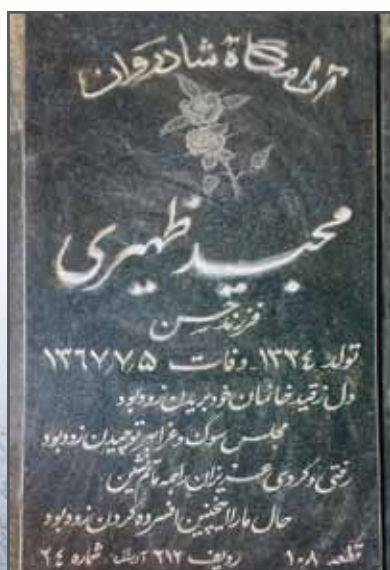 آرامگاه شادروان
مجید ظهیری
فرزند حسن
تولد ۱۳۳٤ وفات ۱۳٦۷٫۷٫۵
دل ز قید خانمان خود بریدن زود بود
مجلس سوک و عزا بهر تو چیدن زود بود
رفتی و کردی عزیزان را همه ماتم نشین
حال ما را اینچنین افسرده کردن زود بود
قطعه ۱۰۸ ردیف ۲۱۲ شماره ٢٤